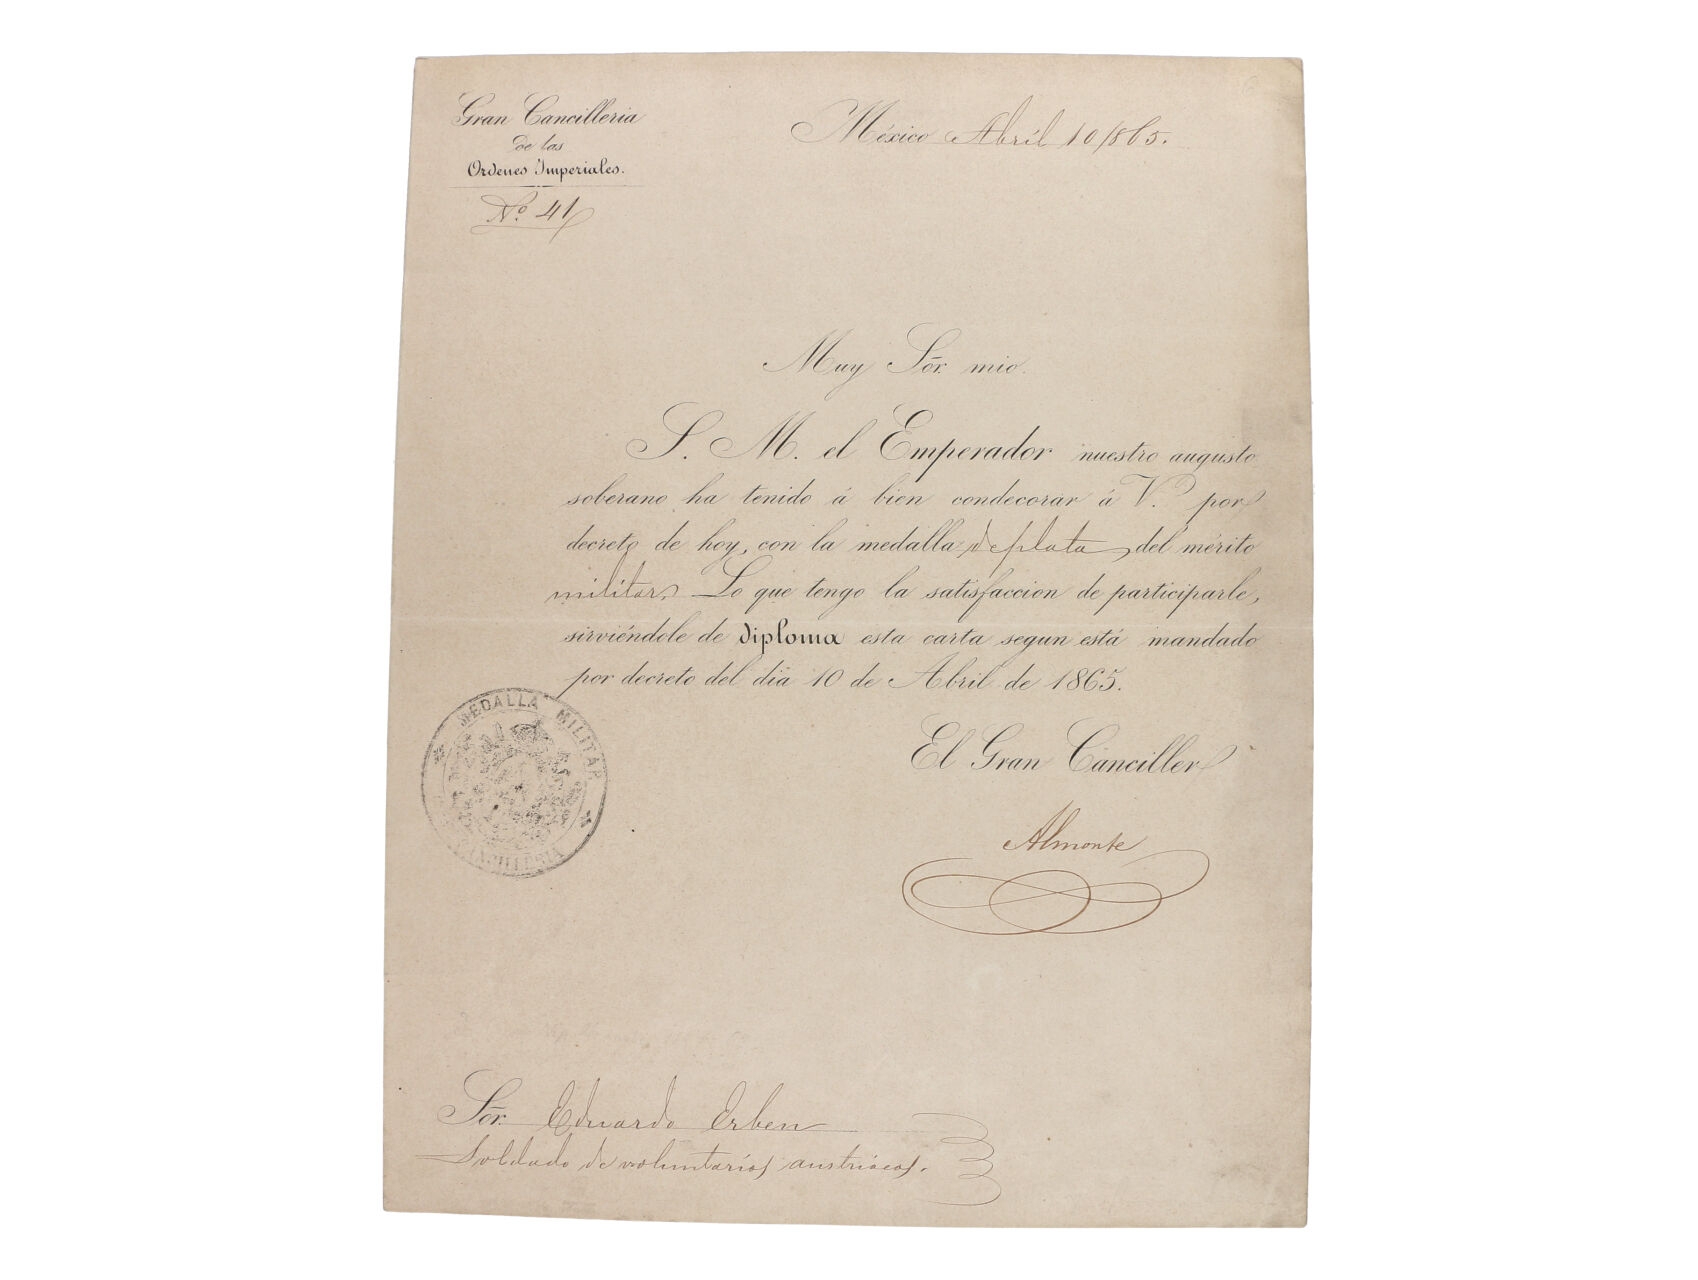 Gran Cancilleria
de las
Ordenes Imperiales.
Nº 41
México Abril 10/865.
Muy Sōr. mio.
S. M. el Emperador nuestro augusto
soberano ha tenido á bien condecorar á V. por
decreto de hoy, con la medalla de plata del mérito
militar. Lo que tengo la satisfaccion de participarle,
sirviéndole de diploma esta carta segun está mandado
por decreto del dia 10 de Abril de 1865.
MEDALLA MILITAR
CANCILLERIA
El Gran Canciller
Almonte
Sōr. Eduardo Erben
Soldado de voluntarios austriacos.